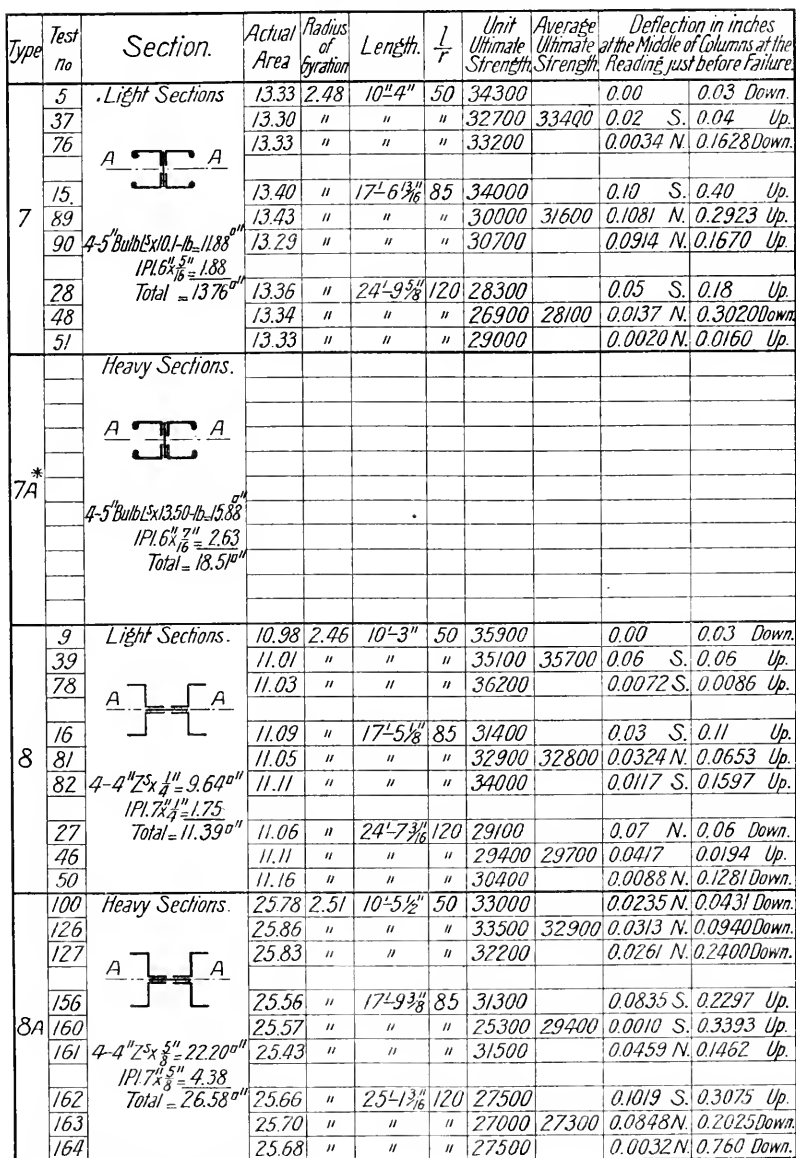 Type Test no Section. Actual Area Radius of Gyration Length. l/r Unit Ultimate Strength. Average Ultimate Strength. Deflection in inches at the Middle of Columns at the Reading just before Failure.
7
Light Sections
A A
4-5" Bulb Ls x 10.1-lb = 11.88 □"
1 Pl. 6" x 5/16" = 1.88
Total = 13.76 □"
5 13.33 2.48 10'-4" 50 34300 0.00 0.03 Down.
37 13.30 " " " 32700 33400 0.02 S. 0.04 Up.
76 13.33 " " " 33200 0.0034 N. 0.1628 Down.
15. 13.40 " 17'-6 13/16" 85 34000 0.10 S. 0.40 Up.
89 13.43 " " " 30000 31600 0.1081 N. 0.2923 Up.
90 13.29 " " " 30700 0.0914 N. 0.1670 Up.
28 13.36 " 24'-9 5/8" 120 28300 0.05 S. 0.18 Up.
48 13.34 " " " 26900 28100 0.0137 N. 0.3020 Down.
51 13.33 " " " 29000 0.0020 N. 0.0160 Up.
7A*
Heavy Sections.
A A
4-5" Bulb Ls x 13.50-lb = 15.88 □"
1 Pl. 6" x 7/16" = 2.63
Total = 18.51 □"
8
Light Sections.
A A
4-4" Zs x 1/4" = 9.64 □"
1 Pl. 7" x 1/4" = 1.75
Total = 11.39 □"
9 10.98 2.46 10'-3" 50 35900 0.00 0.03 Down.
39 11.01 " " " 35100 35700 0.06 S. 0.06 Up.
78 11.03 " " " 36200 0.0072 S. 0.0086 Up.
16 11.09 " 17'-5 1/8" 85 31400 0.03 S. 0.11 Up.
81 11.05 " " " 32900 32800 0.0324 N. 0.0653 Up.
82 11.11 " " " 34000 0.0117 S. 0.1597 Up.
27 11.06 " 24'-7 3/16" 120 29100 0.07 N. 0.06 Down.
46 11.11 " " " 29400 29700 0.0417 0.0194 Up.
50 11.16 " " " 30400 0.0088 N. 0.1281 Down.
8A
Heavy Sections.
A A
4-4" Zs x 5/8" = 22.20 □"
1 Pl. 7" x 5/8" = 4.38
Total = 26.58 □"
100 25.78 2.51 10'-5 1/2" 50 33000 0.0235 N. 0.0431 Down.
126 25.86 " " " 33500 32900 0.0313 N. 0.0940 Down.
127 25.83 " " " 32200 0.0261 N. 0.2400 Down.
156 25.56 " 17'-9 3/8" 85 31300 0.0835 S. 0.2297 Up.
160 25.57 " " " 25300 29400 0.0010 S. 0.3393 Up.
161 25.43 " " " 31500 0.0459 N. 0.1462 Up.
162 25.66 " 25'-1 3/16" 120 27500 0.1019 S. 0.3075 Up.
163 25.70 " " " 27000 27300 0.0848 N. 0.2025 Down.
164 25.68 " " " 27500 0.0032 N. 0.760 Down.